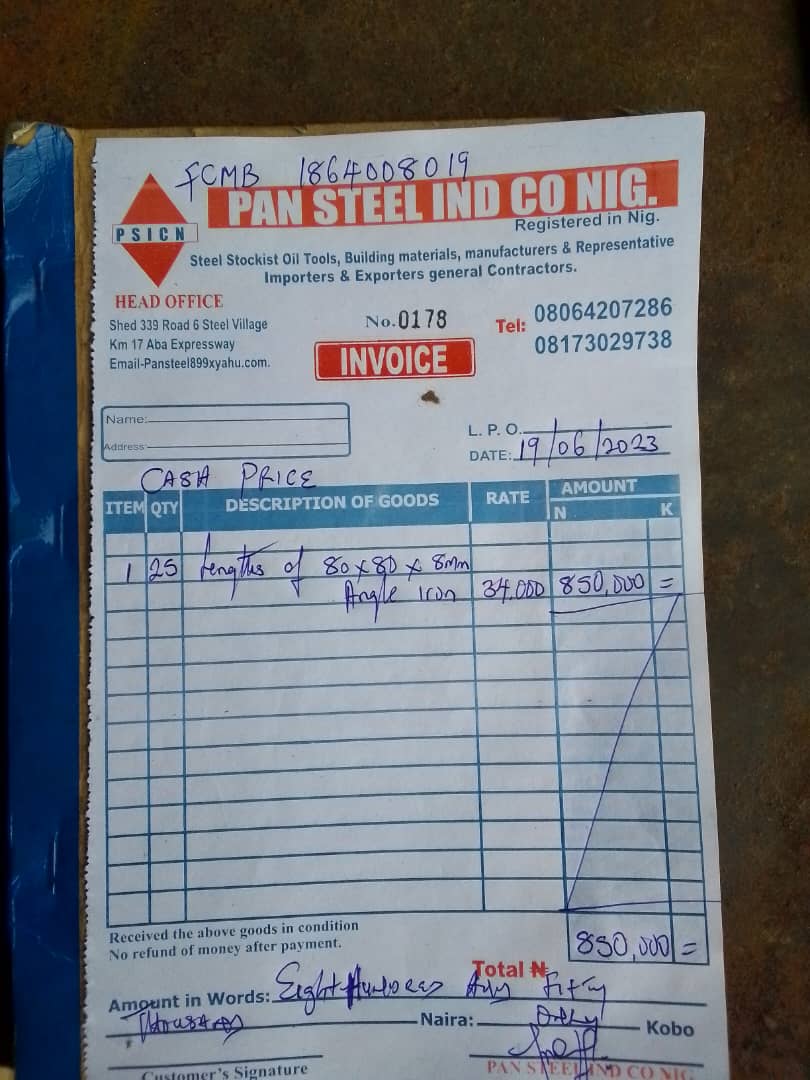 FCMB 1864008019
PAN STEEL IND CO NIG.
PSICN
Registered in Nig.
Steel Stockist Oil Tools, Building materials, manufacturers & Representative
Importers & Exporters general Contractors.
HEAD OFFICE
Shed 339 Road 6 Steel Village
Km 17 Aba Expressway
Email-Pansteel899xyahu.com.
No.0178
INVOICE
Tel: 08064207286
08173029738
Name:
Address:
L. P. O.
DATE: 19/06/2023
CASH PRICE
ITEM QTY DESCRIPTION OF GOODS RATE AMOUNT
N K
1 25 Lengths of 80 x 80 x 8mm
Angle Iron 34,000 850,000 =
Received the above goods in condition
No refund of money after payment.
Total ₦ 850,000 =
Amount in Words: Eight Hundred And Fifty
Thousand Naira: Only Kobo
Customer's Signature
PAN STEEL IND CO NIG.